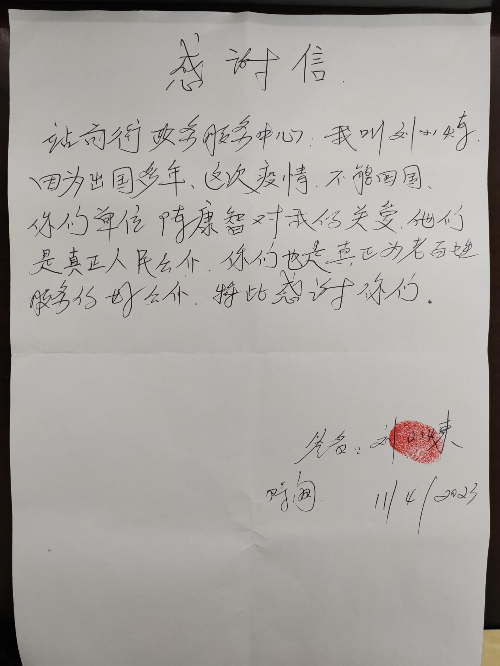 感谢信.
站前街政务服务中心. 我叫刘小妹.
因为出国多年、这次疫情. 不能回国、
你们单位 陈康智对我的关爱. 他们
是真正人民公仆. 你们也是真正为老百姓
服务的好公仆. 特此感谢你们。
签名: 刘
时间 11/4/2023